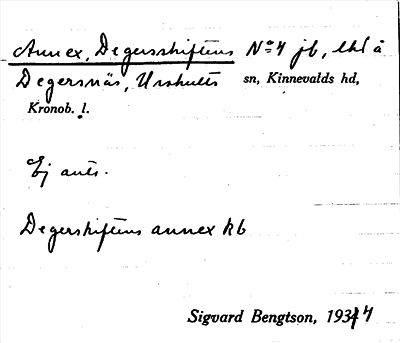 Annex, Degersskiftens No 4 jb, lhl å
Degersnäs, Urshults sn, Kinnevalds hd,
Kronob. l.
Ej ants.
Degerskiftens annex kb
Sigvard Bengtson, 1934